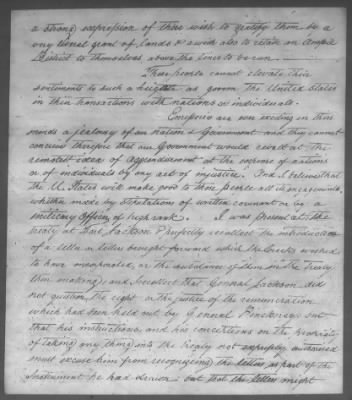 a strong expression of their wish to gratify them by a
very liberal grant of lands & a wish also to retain an ample
District to themselves above the line to be run.
These people cannot elevate their
sentiments to such a height as govern the United States
in their transactions with nations or individuals.
Emissaries are ever exciting in their
minds a jealousy of our nation & Government and they cannot
conceive therefore that our Government would revolt at the
remotest idea of aggrandisement at the expense of nations
or of individuals by any act of injustice. And I believe that
the U. States will make good to these people all its engagements,
whether made by stipulations of written covenant or by a
military officer of high rank. I was present at the
treaty at Fort Jackson & perfectly recollect the introduction
of a letter or letters brought forward which the Creeks wished
to have incorporated, or the substance of them in the Treaty
then making; and I recollect that General Jackson did
not question the right or the justice of the remuneration
which had been held out by General Pinckney: but
that his instructions, and his conceptions on the propriety
of taking any thing into the treaty not expressly authorised
must excuse him from recognizing the letters as part of the
Instrument he had drawn: but that the letters might